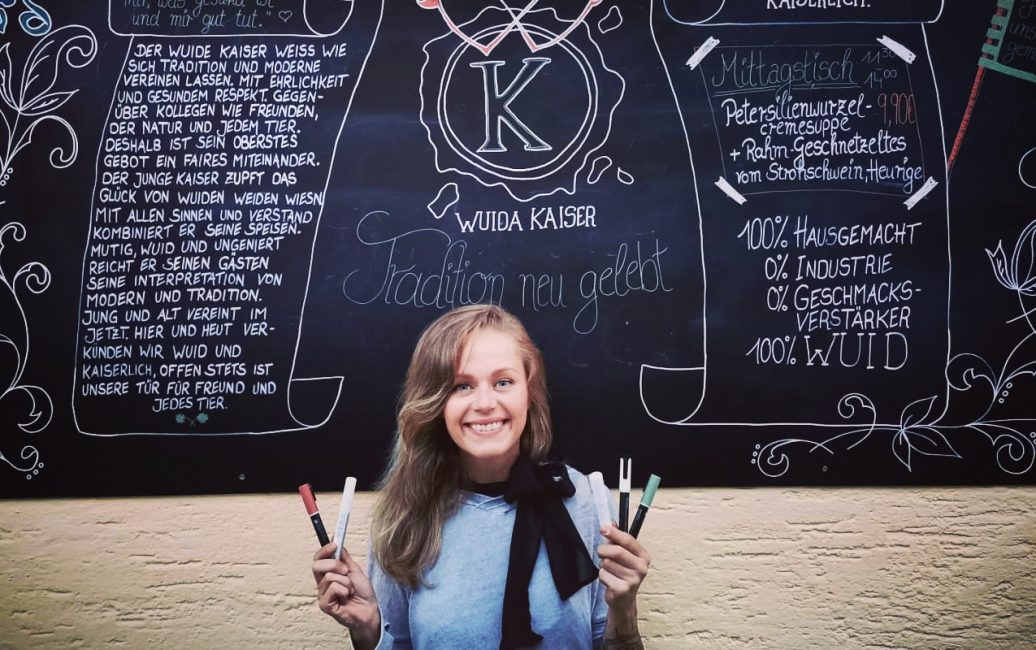 mir, was gesund ist
und mir gut tut."
DER WUIDE KAISER WEISS WIE
SICH TRADITION UND MODERNE
VEREINEN LASSEN. MIT EHRLICHKEIT
UND GESUNDEM RESPEKT. GEGEN-
ÜBER KOLLEGEN WIE FREUNDEN,
DER NATUR UND JEDEM TIER.
DESHALB IST SEIN OBERSTES
GEBOT EIN FAIRES MITEINANDER.
DER JUNGE KAISER ZUPFT DAS
GLÜCK VON WUIDEN WEIDEN WIESN
MIT ALLEN SINNEN UND VERSTAND
KOMBINIERT ER SEINE SPEISEN.
MUTIG, WUID UND UNGENIERT
REICHT ER SEINEN GÄSTEN
SEINE INTERPRETATION VON
MODERN UND TRADITION.
JUNG UND ALT VEREINT IM
JETZT. HIER UND HEUT VER-
KUNDEN WIR WUID UND
KAISERLICH, OFFEN STETS IST
UNSERE TÜR FÜR FREUND UND
JEDES TIER.
K
WUIDA KAISER
Tradition neu gelebt
KAISERLICH.
Mittagstisch 11:30
14:00
Petersilienwurzel- 9,90€
cremesuppe
+ Rahm-Geschnetzeltes
vom Strohschwein, Heurige
100% HAUSGEMACHT
0% INDUSTRIE
0% GESCHMACKS-
VERSTÄRKER
100% WUID